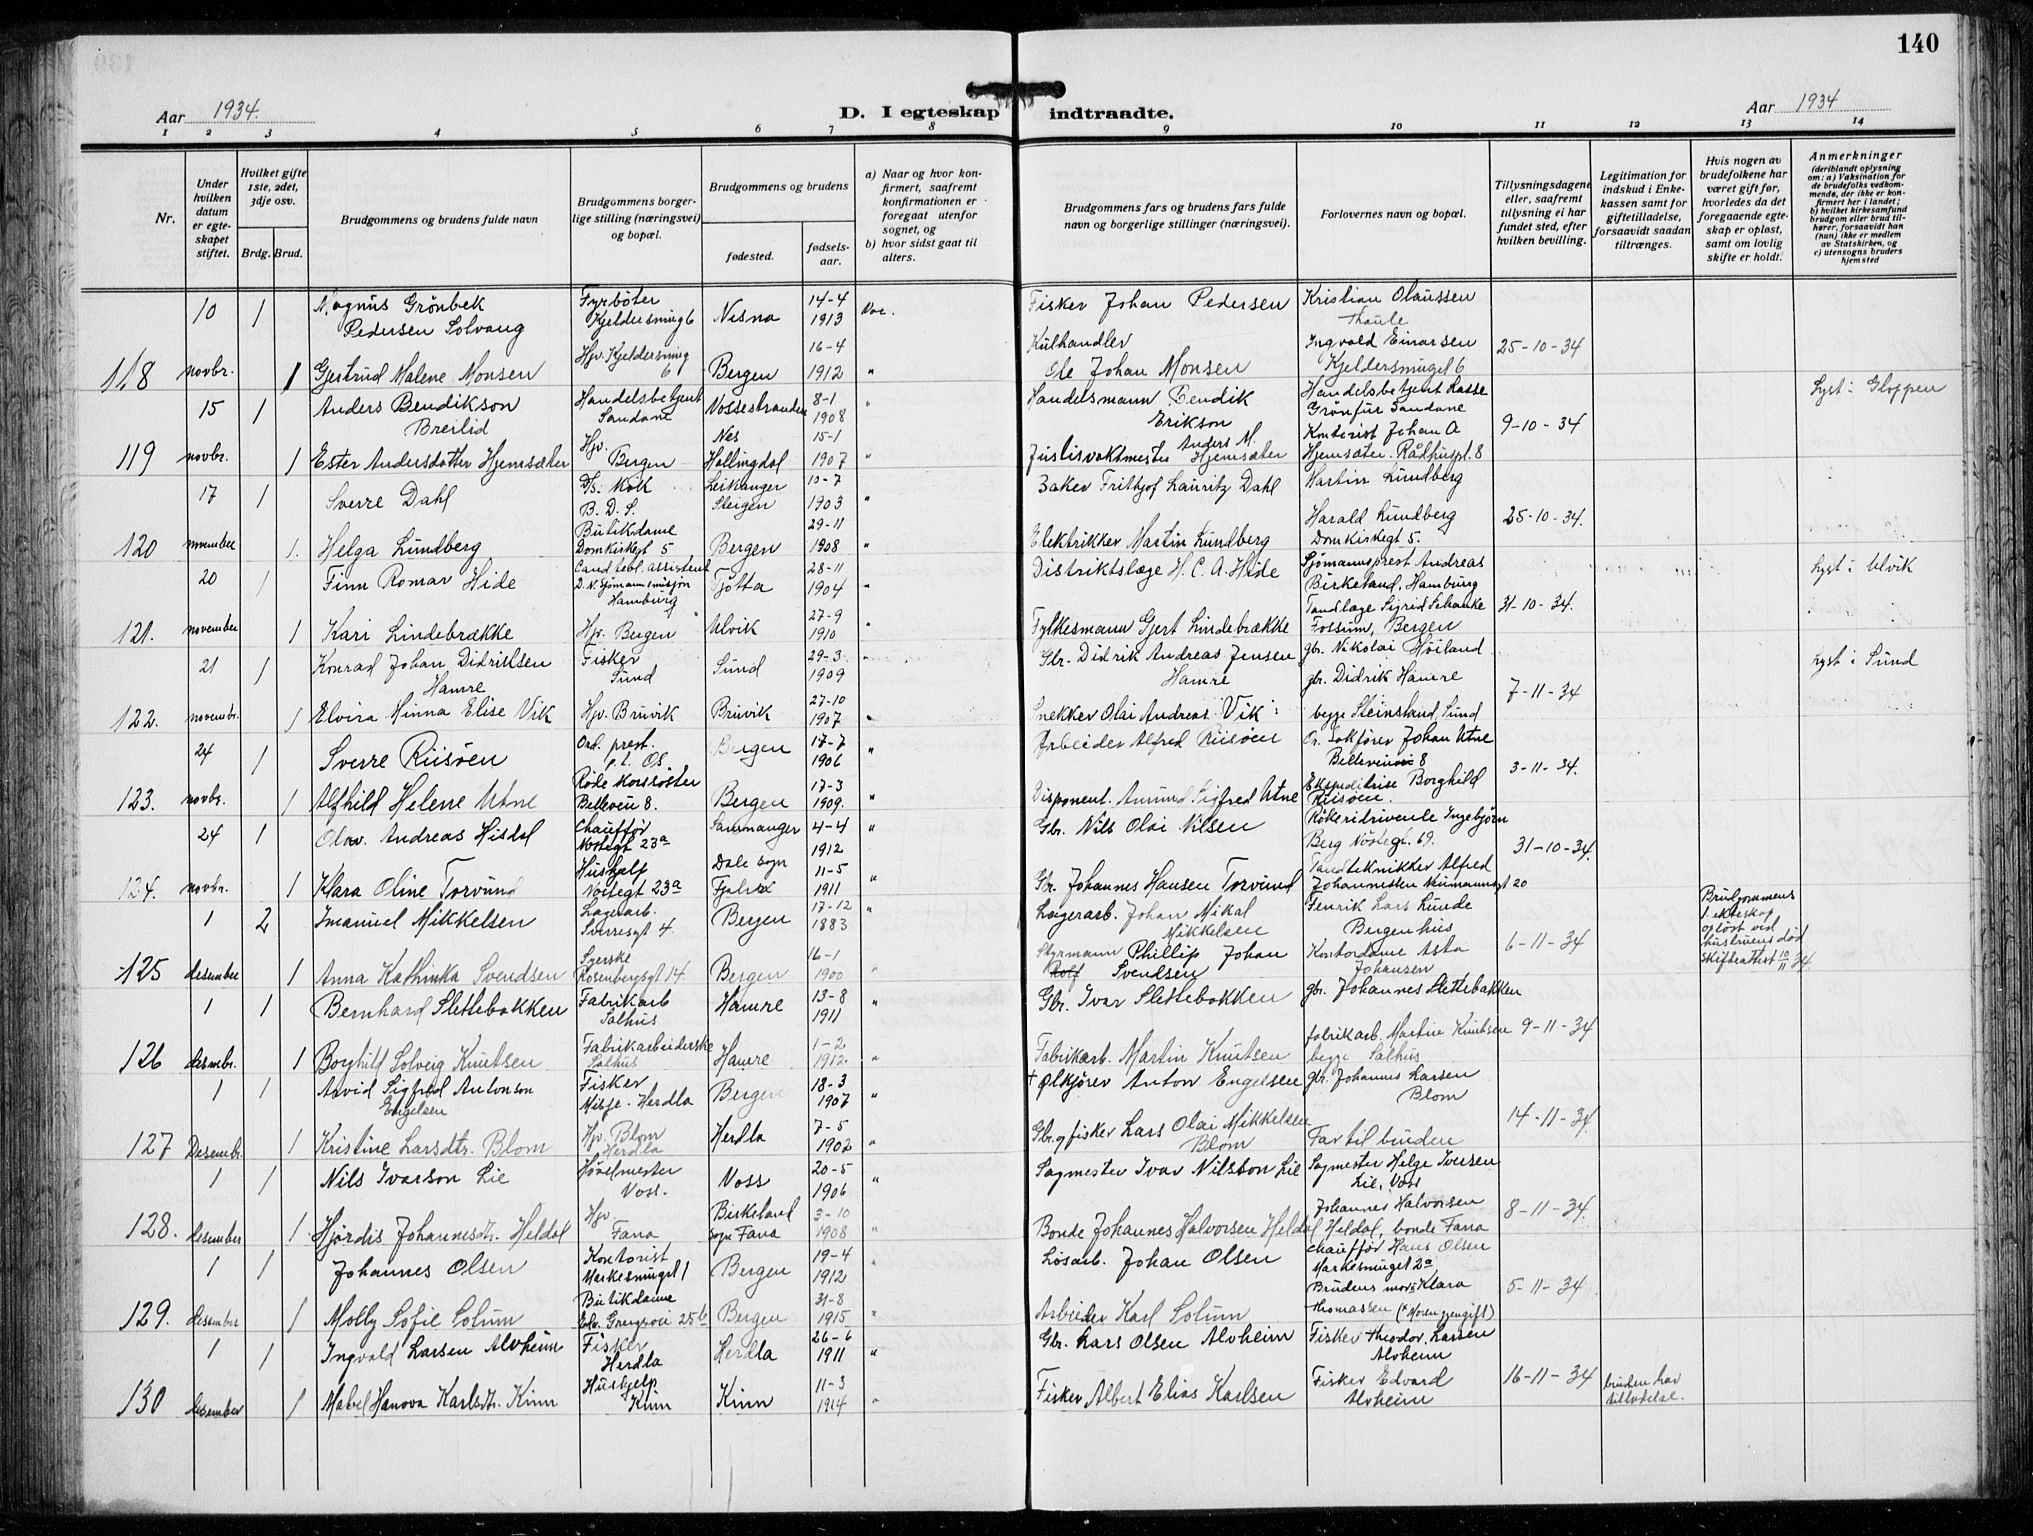 140
Aar 1934.
D. I egteskap indtraadte.
Aar 1934
1 2 3 4 5 6 7 8 9 10 11 12 13 14
Nr.
Under hvilken datum er egteskapet stiftet.
Hvilket gifte 1ste, 2det, 3dje osv.
Brdg. Brud.
Brudgommens og brudens fulde navn
Brudgommens borgerlige stilling (næringsvei) og bopæl.
Brudgommens og brudens
fødested.
fødselsaar.
a) Naar og hvor konfirmert, saafremt konfirmationen er foregaat utenfor sognet, og
b) hvor sidst gaat til alters.
Brudgommens fars og brudens fars fulde navn og borgerlige stillinger (næringsvei).
Forlovernes navn og bopæl.
Tillysningsdagene eller, saafremt tillysning ei har fundet sted, efter hvilken bevilling.
Legitimation for indskud i Enkekassen samt for giftetilladelse, forsaavidt saadan tiltrænges.
Hvis nogen av brudefolkene har været gift før, hvorledes da det foregaaende egteskap er opløst, samt om lovlig skifte er holdt.
Anmerkninger (deriblandt oplysning om: a) Vaksination for de brudefolks vedkommende, der ikke er konfirmert her i landet; b) hvilket kirkesamfund brudgom eller brud tilhører, forsaavidt han (hun) ikke er medlem av Statskirken, og c) utensogns bruders hjemsted
10 1 Magnus Grönbek Pedersen Solvang Fyrböter Kjeldersmug 6 Nesna 14-4 1913 Vac. Fisker Johan Pedersen Kristian Olaussen
118 novbr. 1 Gjertrud Malene Monsen Hjv. Kjeldersmug 6 Bergen 16-4 1912 " Kulhandler Ole Johan Monsen Ingvald Einarsen Kjeldersmuget 6 25-10-34
15 1 Anders Bendikson Breilid Handelsbetjent Sandane Vossestranden 8-1 1908 " Handelsmann Bendik Erikson Handelsbetjent Lasse Grönfur Sandane Lyst i Gloppen
119 novbr. 1 Ester Andersdatter Hjemsæter Hjv. Bergen Nes Hallingdal 15-1 1907 " Justisvaktmester Anders M. Hjemsæter Kontorist Johan A Hjemsæter. Rådhuspl. 8 9-10-34
17 1 Sverre Dahl D/s. kok B. D. S. Leikanger Steigen 10-7 1903 " Baker Frithjof Lauritz Dahl Martin Lundberg
120 november 1. Helga Lundberg Butikdame Domkirkegt 5 Bergen 29-11 1908 " Elektrikker Martin Lundberg Harald Lundberg Domkirkegt 5. 25-10-34.
20 1 Finn Romar Hide Cand teol. assistent D. N. Sjömannsmisjon Hamburg Tjötta 28-11 1904 " Distriktslæge H. C. A. Hide Sjömannsprest Andreas Birkeland, Hamburg Lyst i Ulvik
121. november 1 Kari Lindebrække Hjv. Bergen Ulvik 27-9 1910 " Fylkesmann Gjert Lindebrække Tandlæge Sigrid Schanke Fossum, Bergen 31-10-34.
21 1 Konrad Johan Didriksen Hamre Fisker Sund Sund 29-3 1909 " Gbr. Didrik Andreas Jensen Hamre gbr. Nikolai Höiland Lyst i Sund
122. novembr. 1 Elvira Minna Elise Vik Hjv. Bruvik Bruvik 27-10 1907 " Snekker Olai Andreas Vik gbr. Didrik Hamre begge Steinsland, Sund 7-11-34
24 1 Sverre Riisöen Ord. prest. p.t. Os. Bergen 17-7 1906 " Arbeider Alfred Riisöen Or. Sakförer Johan Utne Bellevuevei 8
123. novbr. 1 Alfhild Helene Utne Röde korssöster Bellevei 8. Bergen 17-3 1909. " Disponent. Amund Sigfred Utne Ekspeditrise Borghild Riisöen. 3-11-34.
24 1 Olav. Andreas Hisdal Chaufför Nöstegt 23a Samnanger 4-4 1912 " Gbr. Nils Olai Nilsen Rökeridrivende Ingebjörn Berg Nöstegt. 69.
124. novbr. 1 Klara Oline Torvund Hushjelp Nöstegt 23a Dale sogn Fjaler 11-5 1911 " Gbr. Johannes Hansen Torvund Tandteknikker Alfred Johannesen Neumannsgt 20 31-10-34.
1 2 Imanuel Mikkelsen Lagerarb. Sverresgt 4. Bergen 17-12 1883 " Lagerarb. Johan Mikal Mikkelsen Fenrik Lars Lunde Bergenhus Brudgommens 1. ekteskap oplöst ved hustruens död Skifteattest 10/11 34
125 desember 1 Anna Kathinka Svendsen Syerske Rosenbergsgt 14 Bergen 16-1 1900 " Styrmann Phillip Johan Rolf Svendsen Kontordame Asta Johansen 6-11-34
1 1 Bernhard Slettebakken Fabrikarb Salhus Hamre 13-8 1911 " Gbr. Ivar Slettebakken gbr. Johannes Slettebakken
126 desmbr. 1 Borghild Solveig Knutsen Fabrikarbeiderske Salhus Hamre 1-2 1912. " Fabrikarb. Martin Knutsen fabrikarb. Martin Knutsen begge Salhus 9-11-34
1 1 Arvid Sigfred Antonson Engelsen Fisker Misje - Herdla Bergen 18-3 1907 " + Ølkjörer Anton Engelsen gbr. Johannes Larsen Blom
127 Desembr. 1 Kristine Larsdtr. Blom Hjv. Blom Herdla Herdla 7-5 1902 " Gbr. og fisker Lars Olai Mikkelsen Blom Far til bruden 14-11-34
1 1 Nils Ivarson Lie Hövelmester Voss. Voss 20-5 1906 " Sagmester Ivar Nilsson Lie Sagmester Helge Iversen Lie, Voss
128. desember 1 Hjördis Johannesdtr. Heldal Hjv. Fana Birkeland sogn Fana 3-10 1908 " Bonde Johannes Halvorsen Heldal Johannes Halvorsen Heldal, bonde Fana 8-11-34.
1 1 Johannes Olsen Kontorist Markesmuget 1 Bergen 19-4 1912 " Lösarb. Johan Olsen Chaufför Hans Olsen Markesmuget 2a
129. desember 1 Molly Sofie Solum Butikdame Edv. Griegsvei 25b Bergen 31-8 1915 " Arbeider Karl Solum Brudens mor: Klara Thomassen (Moren gjengift) 5-11-34
1 1 Ingvald Larsen Alvheim Fisker Herdla Herdla 26-6 1911 " Gbr. Lars Olsen Alvheim Fisker Theodor Larsen Alvheim
130 desember 1 Mabel Hanova Karlsdtr. Kinn Hushjelp Kinn Kinn 11-3 1914 " Fisker Albert Elias Karlsen Fisker Edvard Alvheim 16-11-34 bruden har tillatelse.